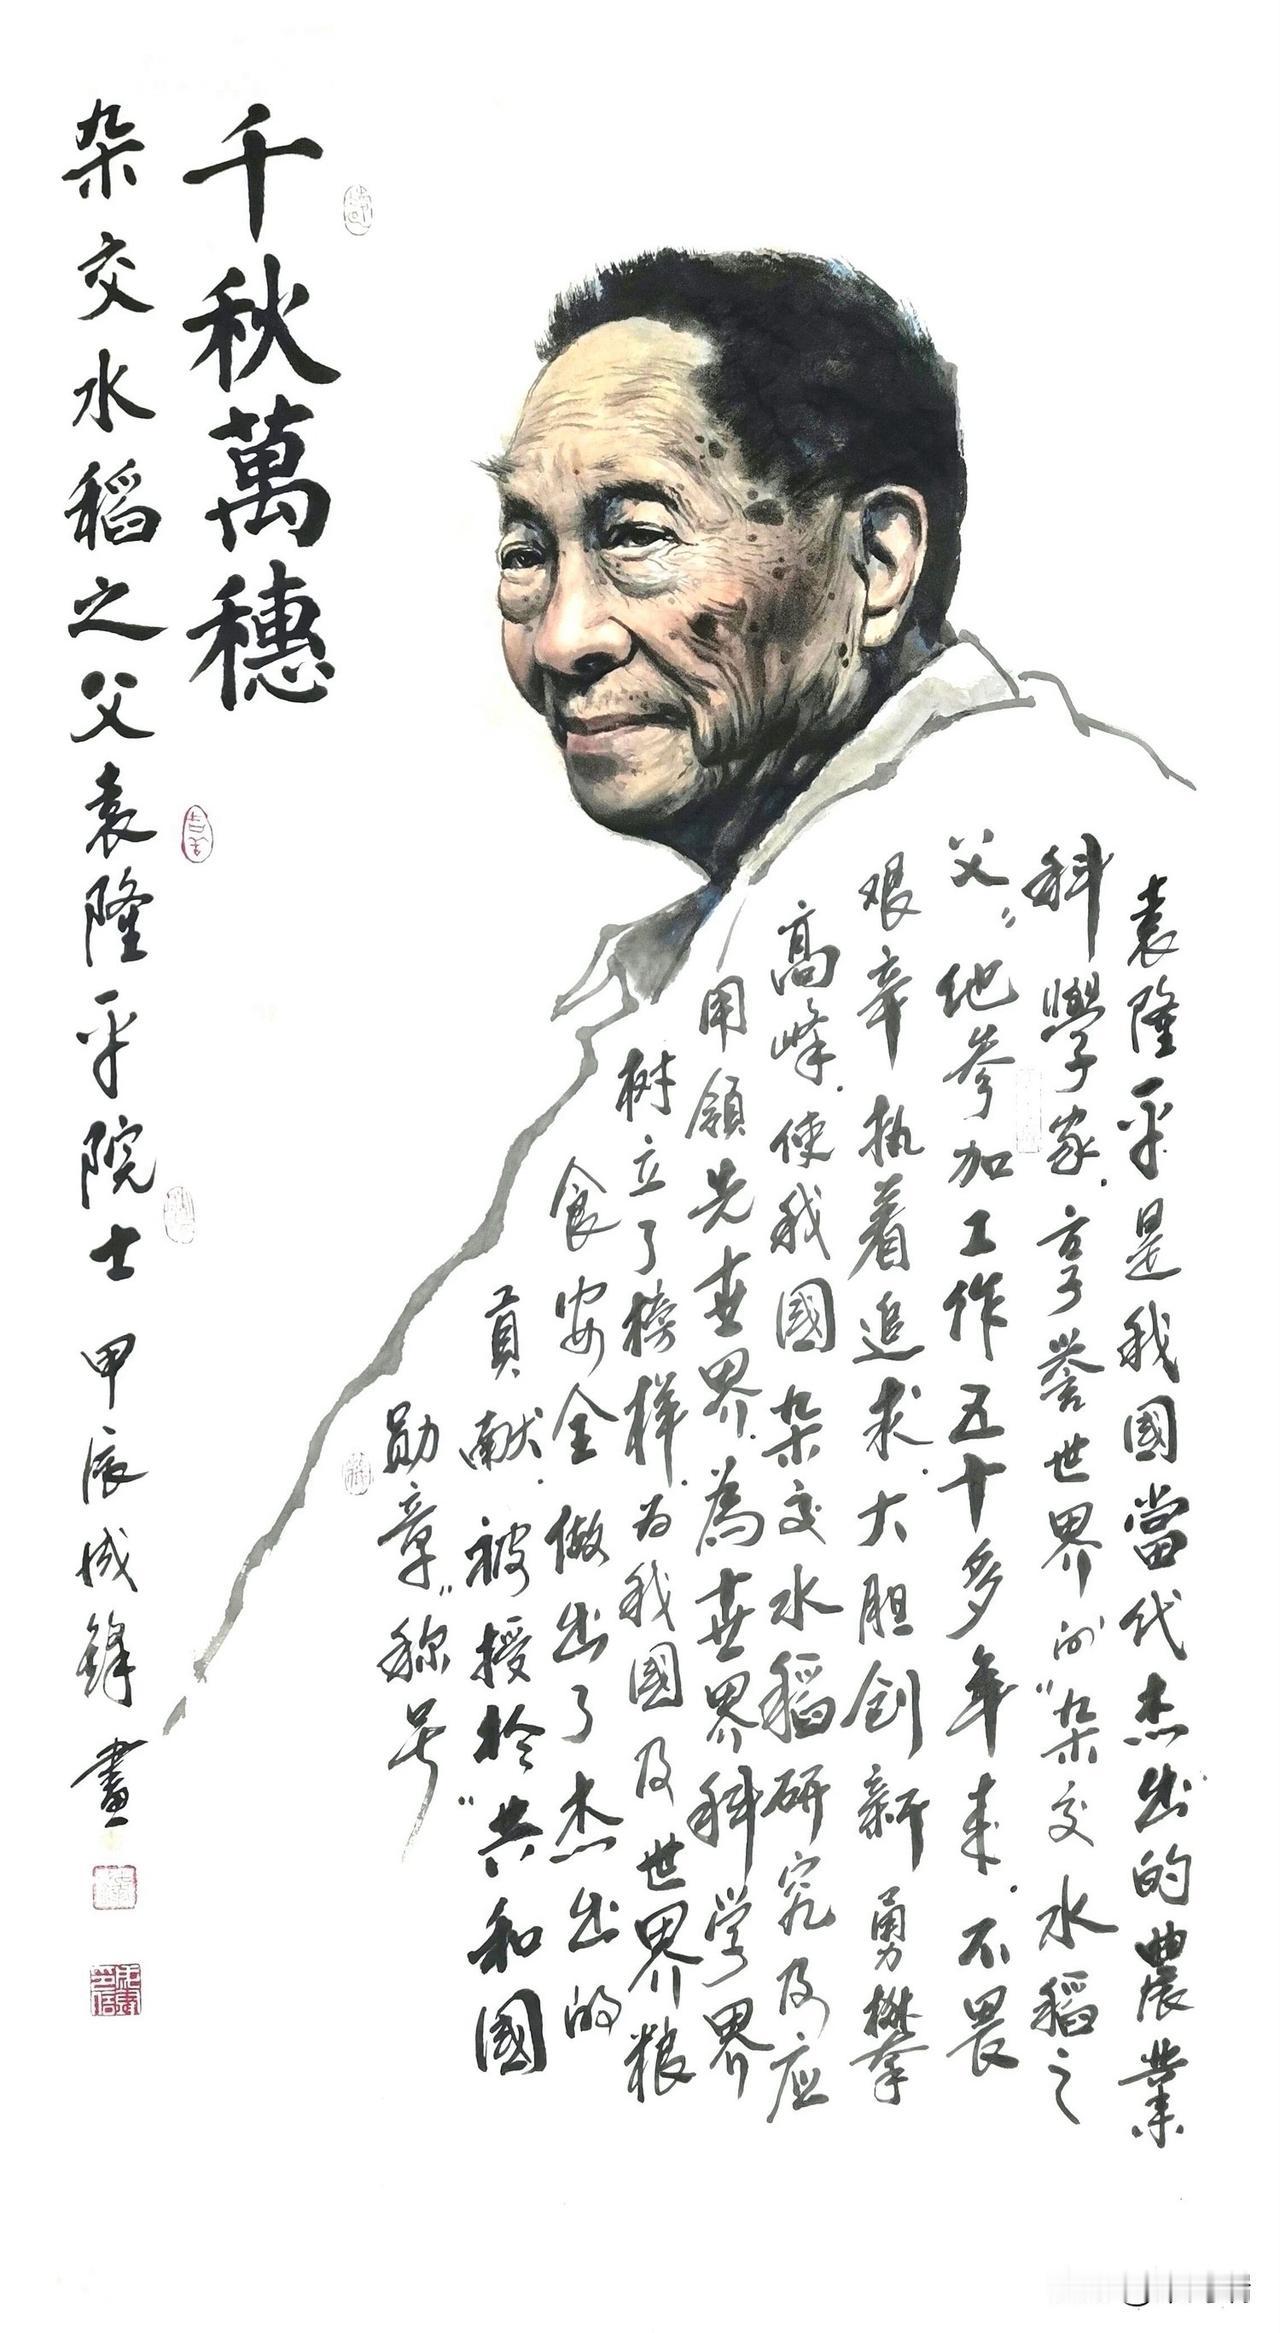 千秋萬穗
杂交水稻之父袁隆平院士 甲辰成鋒畫
袁隆平是我國當代杰出的農業
科學家.享誉世界的"杂交水稻之
父"他参加工作五十多年来.不畏
艰辛执着追求.大胆创新勇攀
高峰.使我國杂交水稻研究及应
用領先世界.為世界科学界
树立了榜样.为我國及世界粮
食安全做出了杰出的
貢献.被授於"共和國
勋章"称号